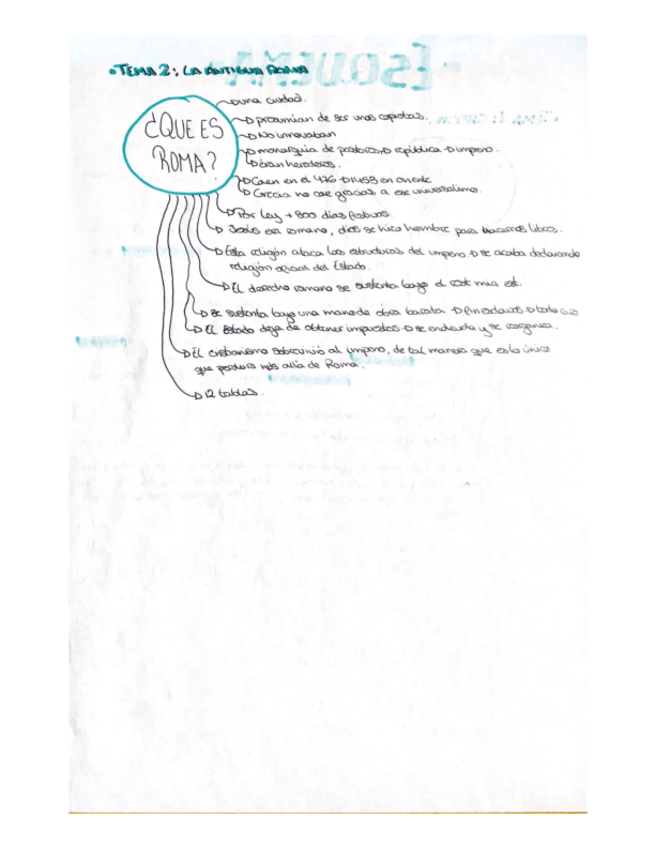 •TEMA 2: LA ANTIGUA ROMA
¿QUE ES
ROMA?
una ciudad.
presumian de ser unos copiotas.
No innovaban
monarquia de pastores → república → imperio.
Eran herederos.
Caen en el 476 → 1453 en oriente
Grecia no cae gracias a ese universalismo.
Por Ley + 800 días festivos
Jesús era romano, dios se hizo hombre para hacernos libres.
Esta religión ataca las estructuras del imperio → se acaba declarando
religión oficial del Estado.
El derecho romano se sustenta bajo el
se sustenta bajo una mano de obra barata → fin esclavos → todo
El Estado deja de obtener impuestos → se endeuda y se
El cristianismo sobrevivió al imperio, de tal manera que es lo único
que perdura más alla de Roma.
12 tablas.